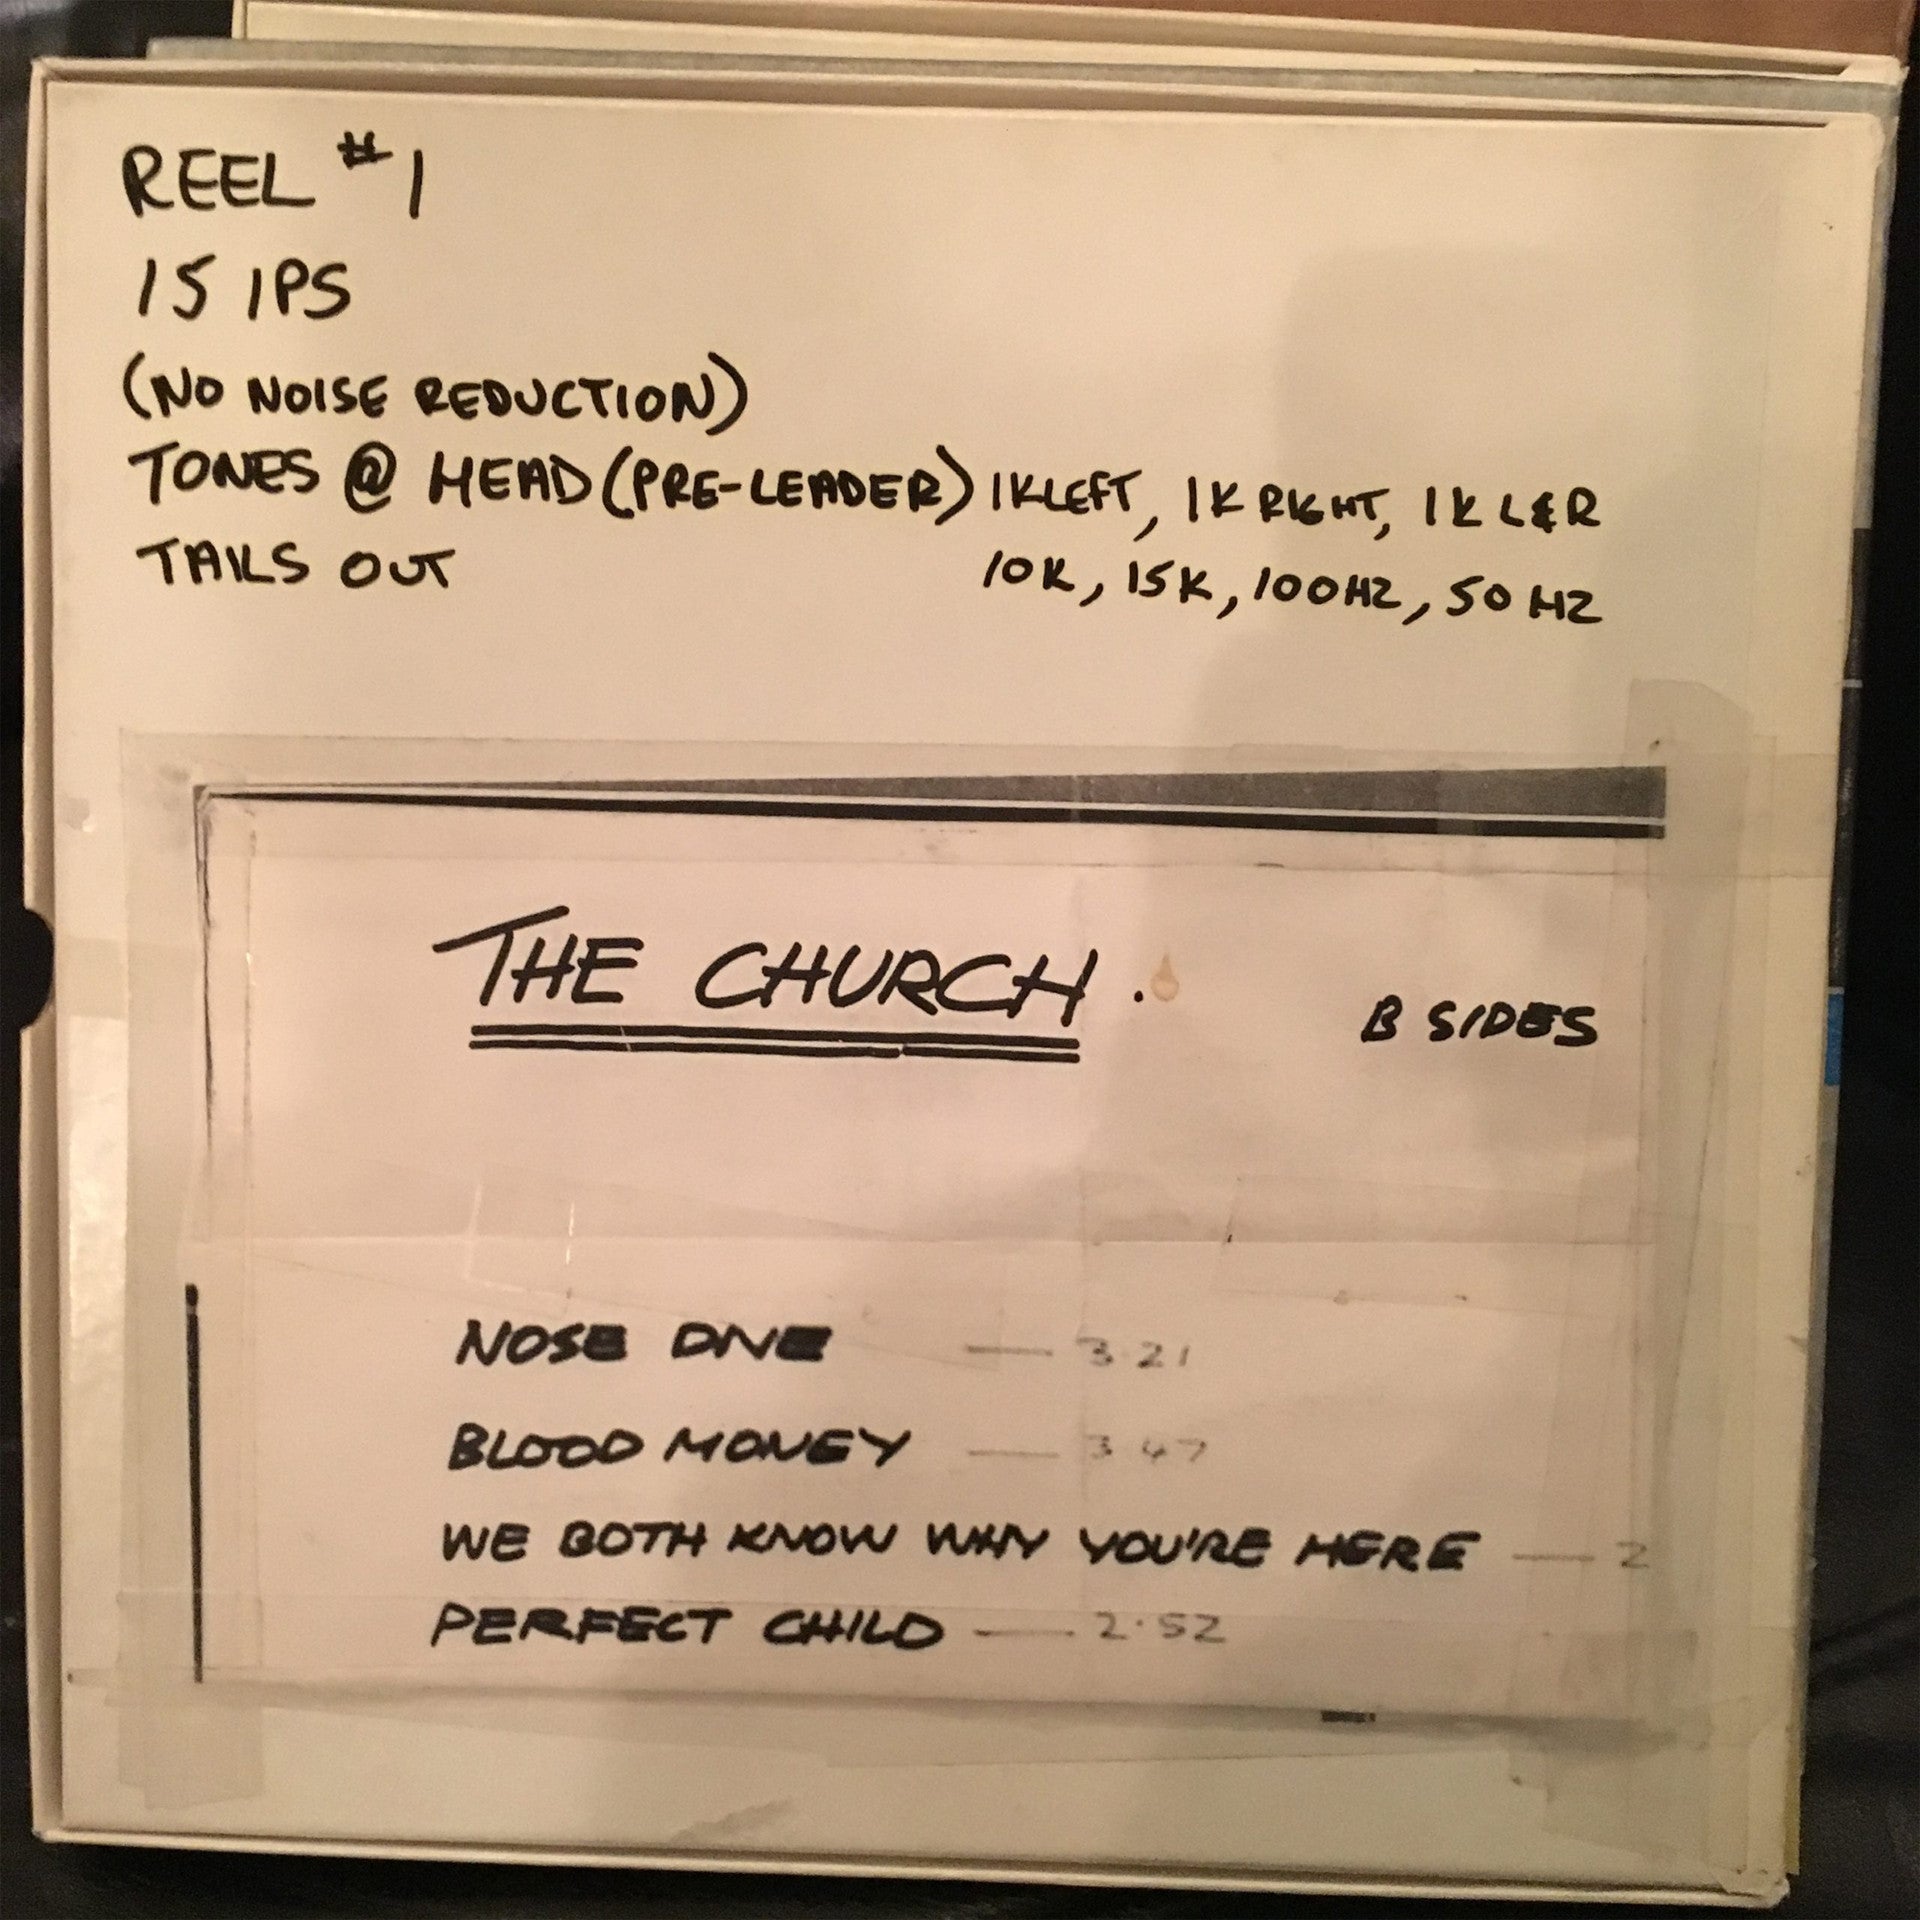 REEL #1
15 IPS
(NO NOISE REDUCTION)
TONES @ HEAD (PRE-LEADER) 1K LEFT, 1K RIGHT, 1K L&R
TAILS OUT 10K, 15K, 100HZ, 50HZ
THE CHURCH.
B SIDES
NOSE DIVE — 3.21
BLOOD MONEY — 3 47
WE BOTH KNOW WHY YOU'RE HERE — 2
PERFECT CHILD — 2.52